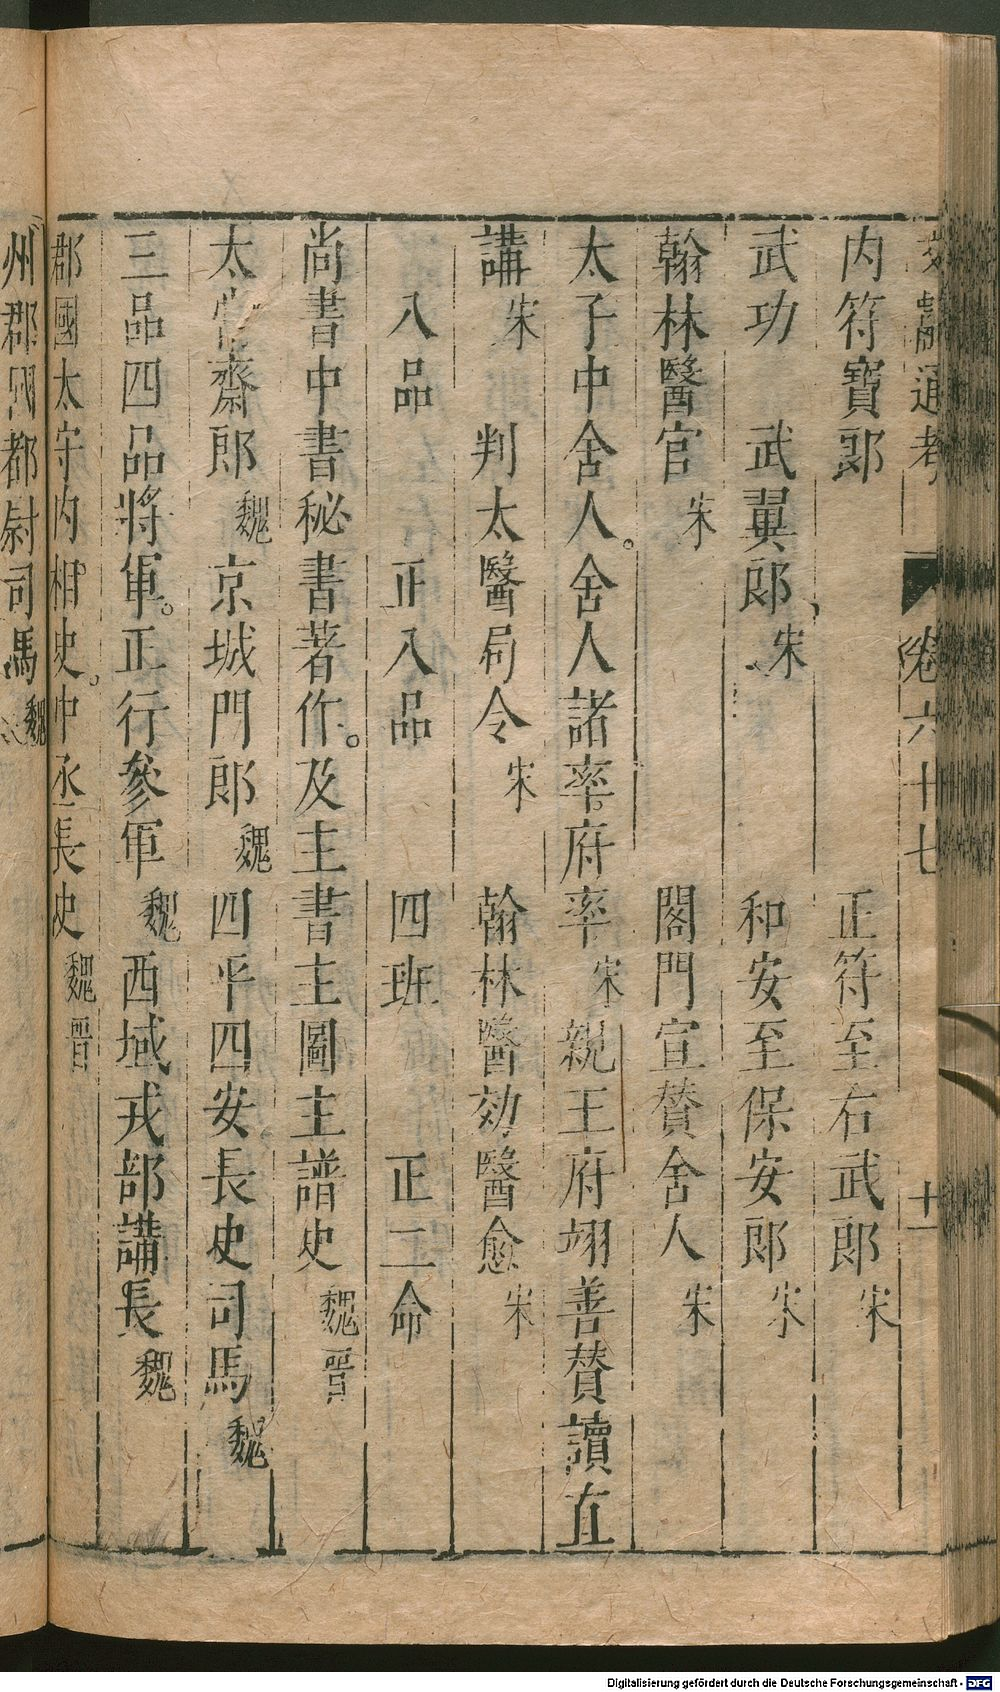 文獻通考 卷六十七 十一
內符寶郎 正符至右武郎 宋
武功 武翼郎 宋 和安至保安郎 宋
翰林醫官 宋 閤門宣贊舍人 宋
太子中舍人。舍人諸率府率 宋 親王府翊善贊讀直
講 宋 判太醫局令 宋 翰林醫効醫愈 宋
八品 正八品 四班 正二命
尚書中書秘書著作。及主書主圖主譜史 魏晉
太常齋郎 魏 京城門郎 魏 四平四安長史司馬 魏
三品四品將軍。正行參軍 魏 西域戎部講長 魏
郡國太守內相。史。中丞長史 魏晉
州郡國都尉司馬 魏
Digitalisierung gefördert durch die Deutsche Forschungsgemeinschaft - DFG